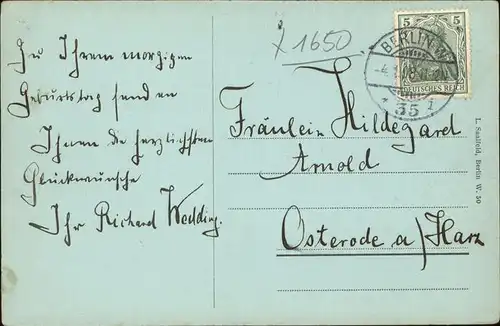 Zu Ihrem morgigen
Geburtstag senden
Ihnen die herzlichsten
Glückwünsche
Ihr Richard Wedding.
X 1650
5 5
BERLIN W
35
DEUTSCHES REICH
Fräulein Hildegard
Arnold
Osterode a/Harz
L. Saalfeld, Berlin W. 30